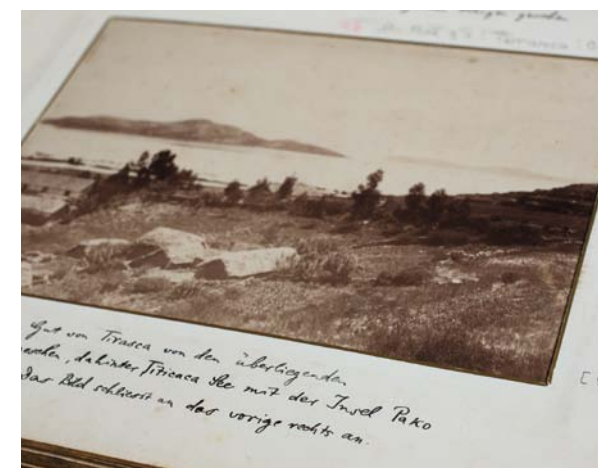 gesehen
Titicaca
Gut von Tirasca von den überliegenden
sehen, dahinter Titicaca See mit der Insel Pako
Das Bild schliesst an das vorige rechts an.